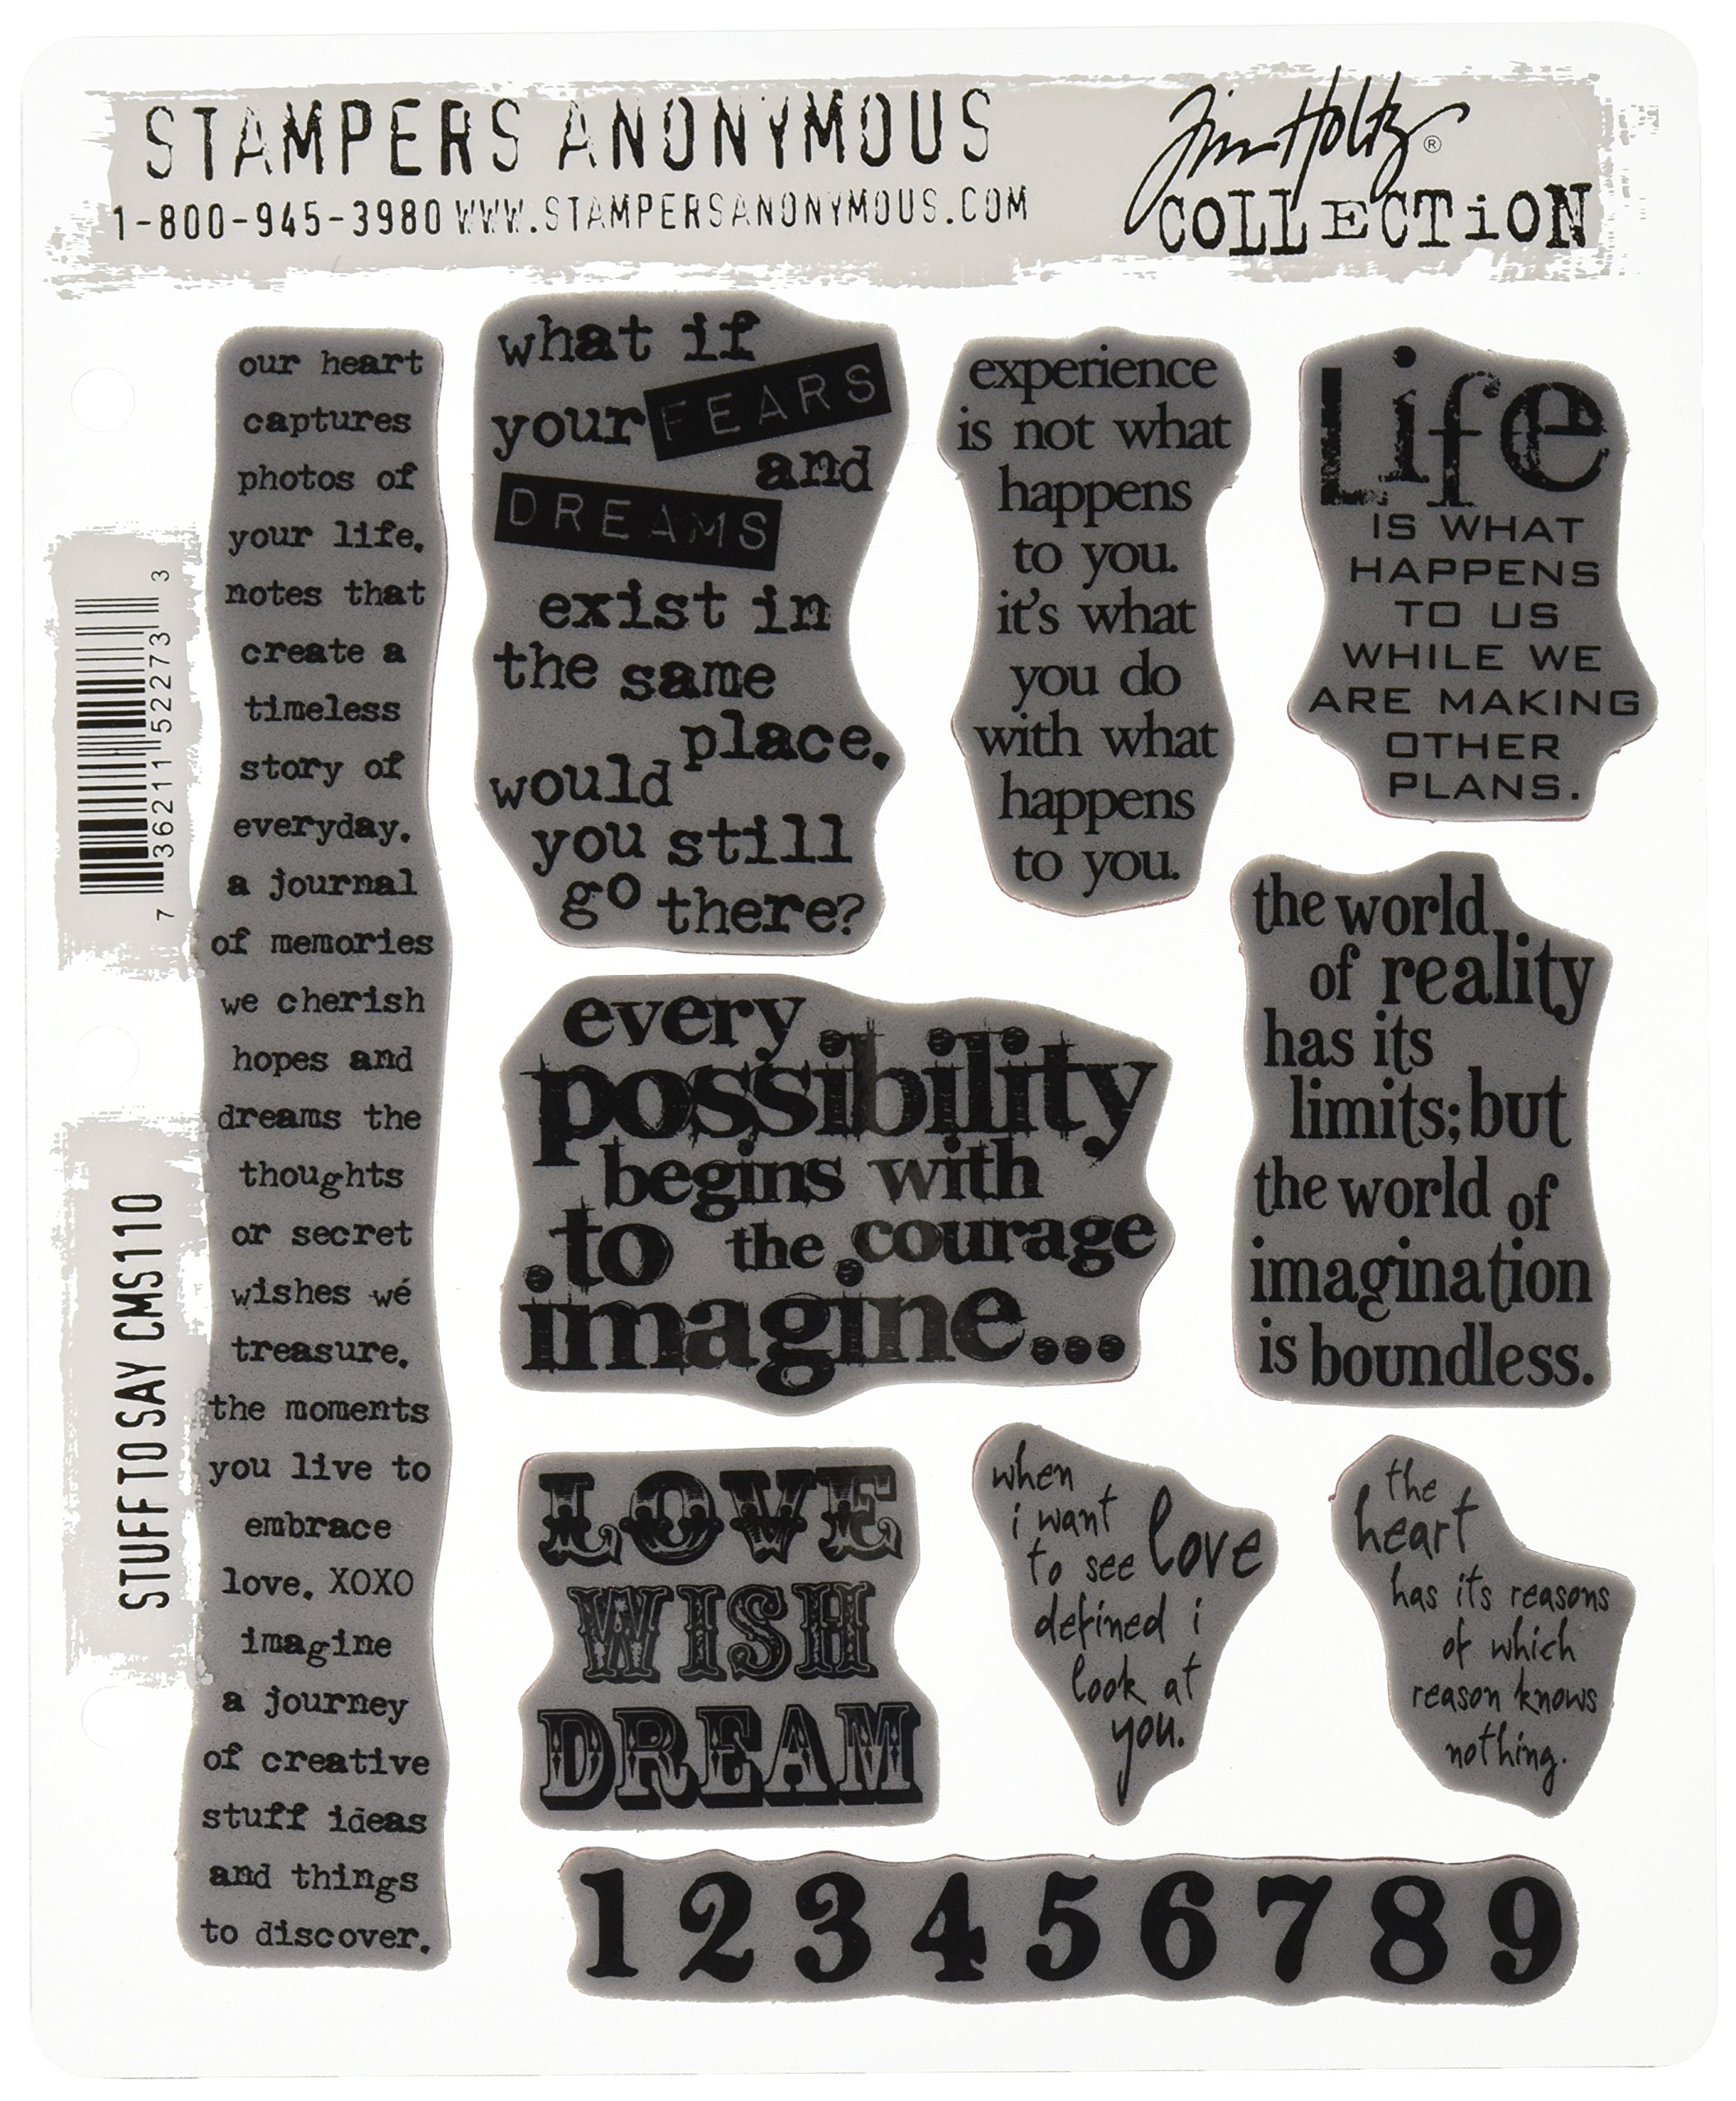 STAMPERS ANONYMOUS
1-800-945-3980 WWW.STAMPERSANONYMOUS.COM
Tim Holtz®
COLLECTiON
7 36211 52273 3
STUFF TO SAY CMS110
our heart
captures
photos of
your life.
notes that
create a
timeless
story of
everyday.
a journal
of memories
we cherish
hopes and
dreams the
thoughts
or secret
wishes wé
treasure.
the moments
you live to
embrace
love. XOXO
imagine
a journey
of creative
stuff ideas
and things
to discover.
what if
your FEARS
and
DREAMS
exist in
the same
place.
would
you still
go there?
experience
is not what
happens
to you.
it's what
you do
with what
happens
to you.
Life
IS WHAT
HAPPENS
TO US
WHILE WE
ARE MAKING
OTHER
PLANS.
every
possibility
begins with
to the courage
imagine...
the world
of reality
has its
limits; but
the world of
imagination
is boundless.
LOVE
WISH
DREAM
when
i want
to see love
defined i
look at
you.
the
heart
has its reasons
of which
reason knows
nothing.
1 2 3 4 5 6 7 8 9